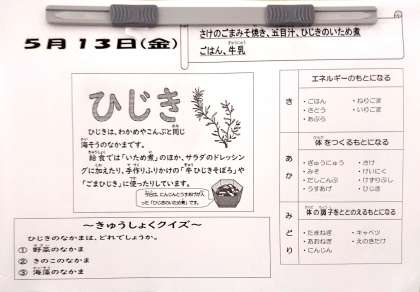 5月13日(金)
さけのごまみそ焼き、五目汁、ひじきのいため煮
ごはん、牛乳
ひじき
ひじきは、わかめやこんぶと同じ
海そうのなかまです。
給食では「いため煮」のほか、サラダのドレッシン
グに加えたり、手作りふりかけの「牛ひじきそぼろ」や
「ごまひじき」に使ったりしています。
今日は、にんじんとうすあげが入
った「ひじきのいため煮」です。
~きゅうしょくクイズ~
ひじきのなかまは、どれでしょうか。
① 野菜のなかま
② きのこのなかま
③ 海藻のなかま
き
エネルギーのもとになる
・ごはん ・ねりごま
・さとう ・いりごま
・あぶら
あか
体をつくるもとになる
・ぎゅうにゅう ・さけ
・みそ ・けいにく
・だしこんぶ ・けずりぶし
・うすあげ ・ひじき
みどり
体の調子をととのえるもとになる
・たまねぎ ・キャベツ
・あおねぎ ・えのきたけ
・にんじん